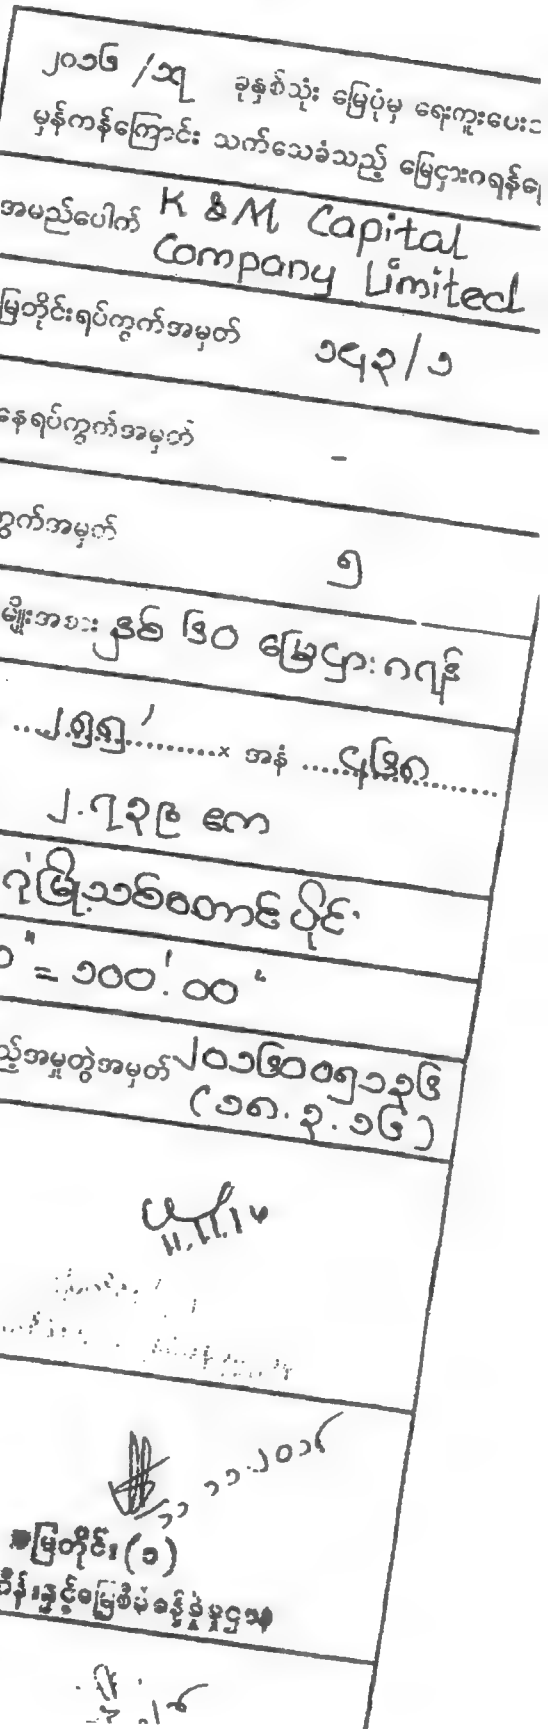 ၂၀၁၆ /၁၇ ခုနှစ်သုံး မြေပုံမှ ရေးကူးပေး
မှန်ကန်ကြောင်း သက်သေခံသည့် မြေငှားဂရန်
အမည်ပေါက် K & M Capital
Company Limited
မြေတိုင်းရပ်ကွက်အမှတ် ၁၄၃/၁
နေရပ်ကွက်အမှတ် -
ကွက်အမှတ် ၅
မျိုးအစား နှစ် ၆၀ မြေငှားဂရန်
၂၅၅' × အနံ ၄၆၈
၂.၇၃၉ ဧက
ဂုံမြို့သစ်တောင်ပိုင်း
၀" = ၁၀၀'.၀၀"
ည့်အမှုတွဲအမှတ် ၂၀၁၆၀၀၅၁၃၆
(၁၈.၃.၁၆)
11.11.16
၁၁ ၁၁.၂၀၁၆
မြေတိုင်း (၁)
ိန်းနှင့်မြေစီမံခန့်ခွဲမှုဌာန